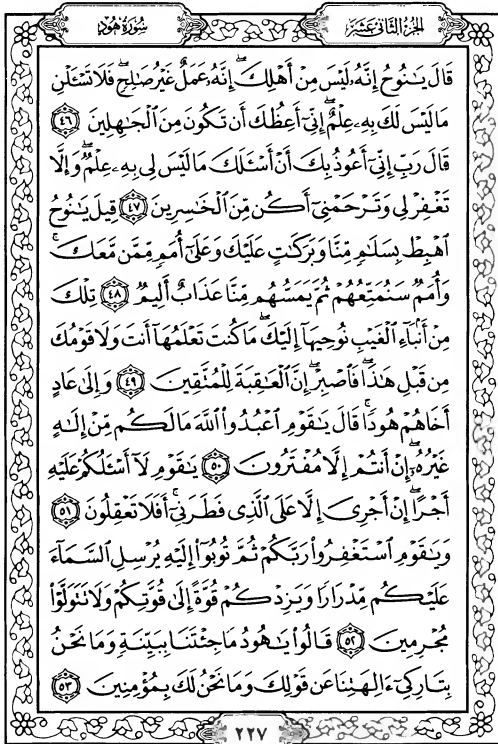 الجزء الثاني عشر
سورة هود
قَالَ يَٰنُوحُ إِنَّهُۥ لَيْسَ مِنْ أَهْلِكَۖ إِنَّهُۥ عَمَلٌ غَيْرُ صَٰلِحٖۖ فَلَا تَسْـَٔلْنِ
مَا لَيْسَ لَكَ بِهِۦ عِلْمٌۖ إِنِّيٓ أَعِظُكَ أَن تَكُونَ مِنَ ٱلْجَٰهِلِينَ ٤٦
قَالَ رَبِّ إِنِّيٓ أَعُوذُ بِكَ أَنْ أَسْـَٔلَكَ مَا لَيْسَ لِي بِهِۦ عِلْمٌۖ وَإِلَّا
تَغْفِرْ لِي وَتَرْحَمْنِيٓ أَكُن مِّنَ ٱلْخَٰسِرِينَ ٤٧ قِيلَ يَٰنُوحُ
ٱهْبِطْ بِسَلَٰمٖ مِّنَّا وَبَرَكَٰتٍ عَلَيْكَ وَعَلَىٰٓ أُمَمٖ مِّمَّن مَّعَكَۚ
وَأُمَمٌ سَنُمَتِّعُهُمْ ثُمَّ يَمَسُّهُم مِّنَّا عَذَابٌ أَلِيمٌ ٤٨ تِلْكَ
مِنْ أَنۢبَآءِ ٱلْغَيْبِ نُوحِيهَآ إِلَيْكَۖ مَا كُنتَ تَعْلَمُهَآ أَنتَ وَلَا قَوْمُكَ
مِن قَبْلِ هَٰذَاۖ فَٱصْبِرْۖ إِنَّ ٱلْعَٰقِبَةَ لِلْمُتَّقِينَ ٤٩ وَإِلَىٰ عَادٍ
أَخَاهُمْ هُودٗاۚ قَالَ يَٰقَوْمِ ٱعْبُدُوا۟ ٱللَّهَ مَا لَكُم مِّنْ إِلَٰهٍ
غَيْرُهُۥٓۖ إِنْ أَنتُمْ إِلَّا مُفْتَرُونَ ٥٠ يَٰقَوْمِ لَآ أَسْـَٔلُكُمْ عَلَيْهِ
أَجْرًاۖ إِنْ أَجْرِيَ إِلَّا عَلَى ٱلَّذِي فَطَرَنِيٓۚ أَفَلَا تَعْقِلُونَ ٥١
وَيَٰقَوْمِ ٱسْتَغْفِرُوا۟ رَبَّكُمْ ثُمَّ تُوبُوٓا۟ إِلَيْهِ يُرْسِلِ ٱلسَّمَآءَ
عَلَيْكُم مِّدْرَارٗا وَيَزِدْكُمْ قُوَّةً إِلَىٰ قُوَّتِكُمْ وَلَا تَتَوَلَّوْا۟
مُجْرِمِينَ ٥٢ قَالُوا۟ يَٰهُودُ مَا جِئْتَنَا بِبَيِّنَةٖ وَمَا نَحْنُ
بِتَارِكِيٓ ءَالِهَتِنَا عَن قَوْلِكَ وَمَا نَحْنُ لَكَ بِمُؤْمِنِينَ ٥٣
٢٢٧